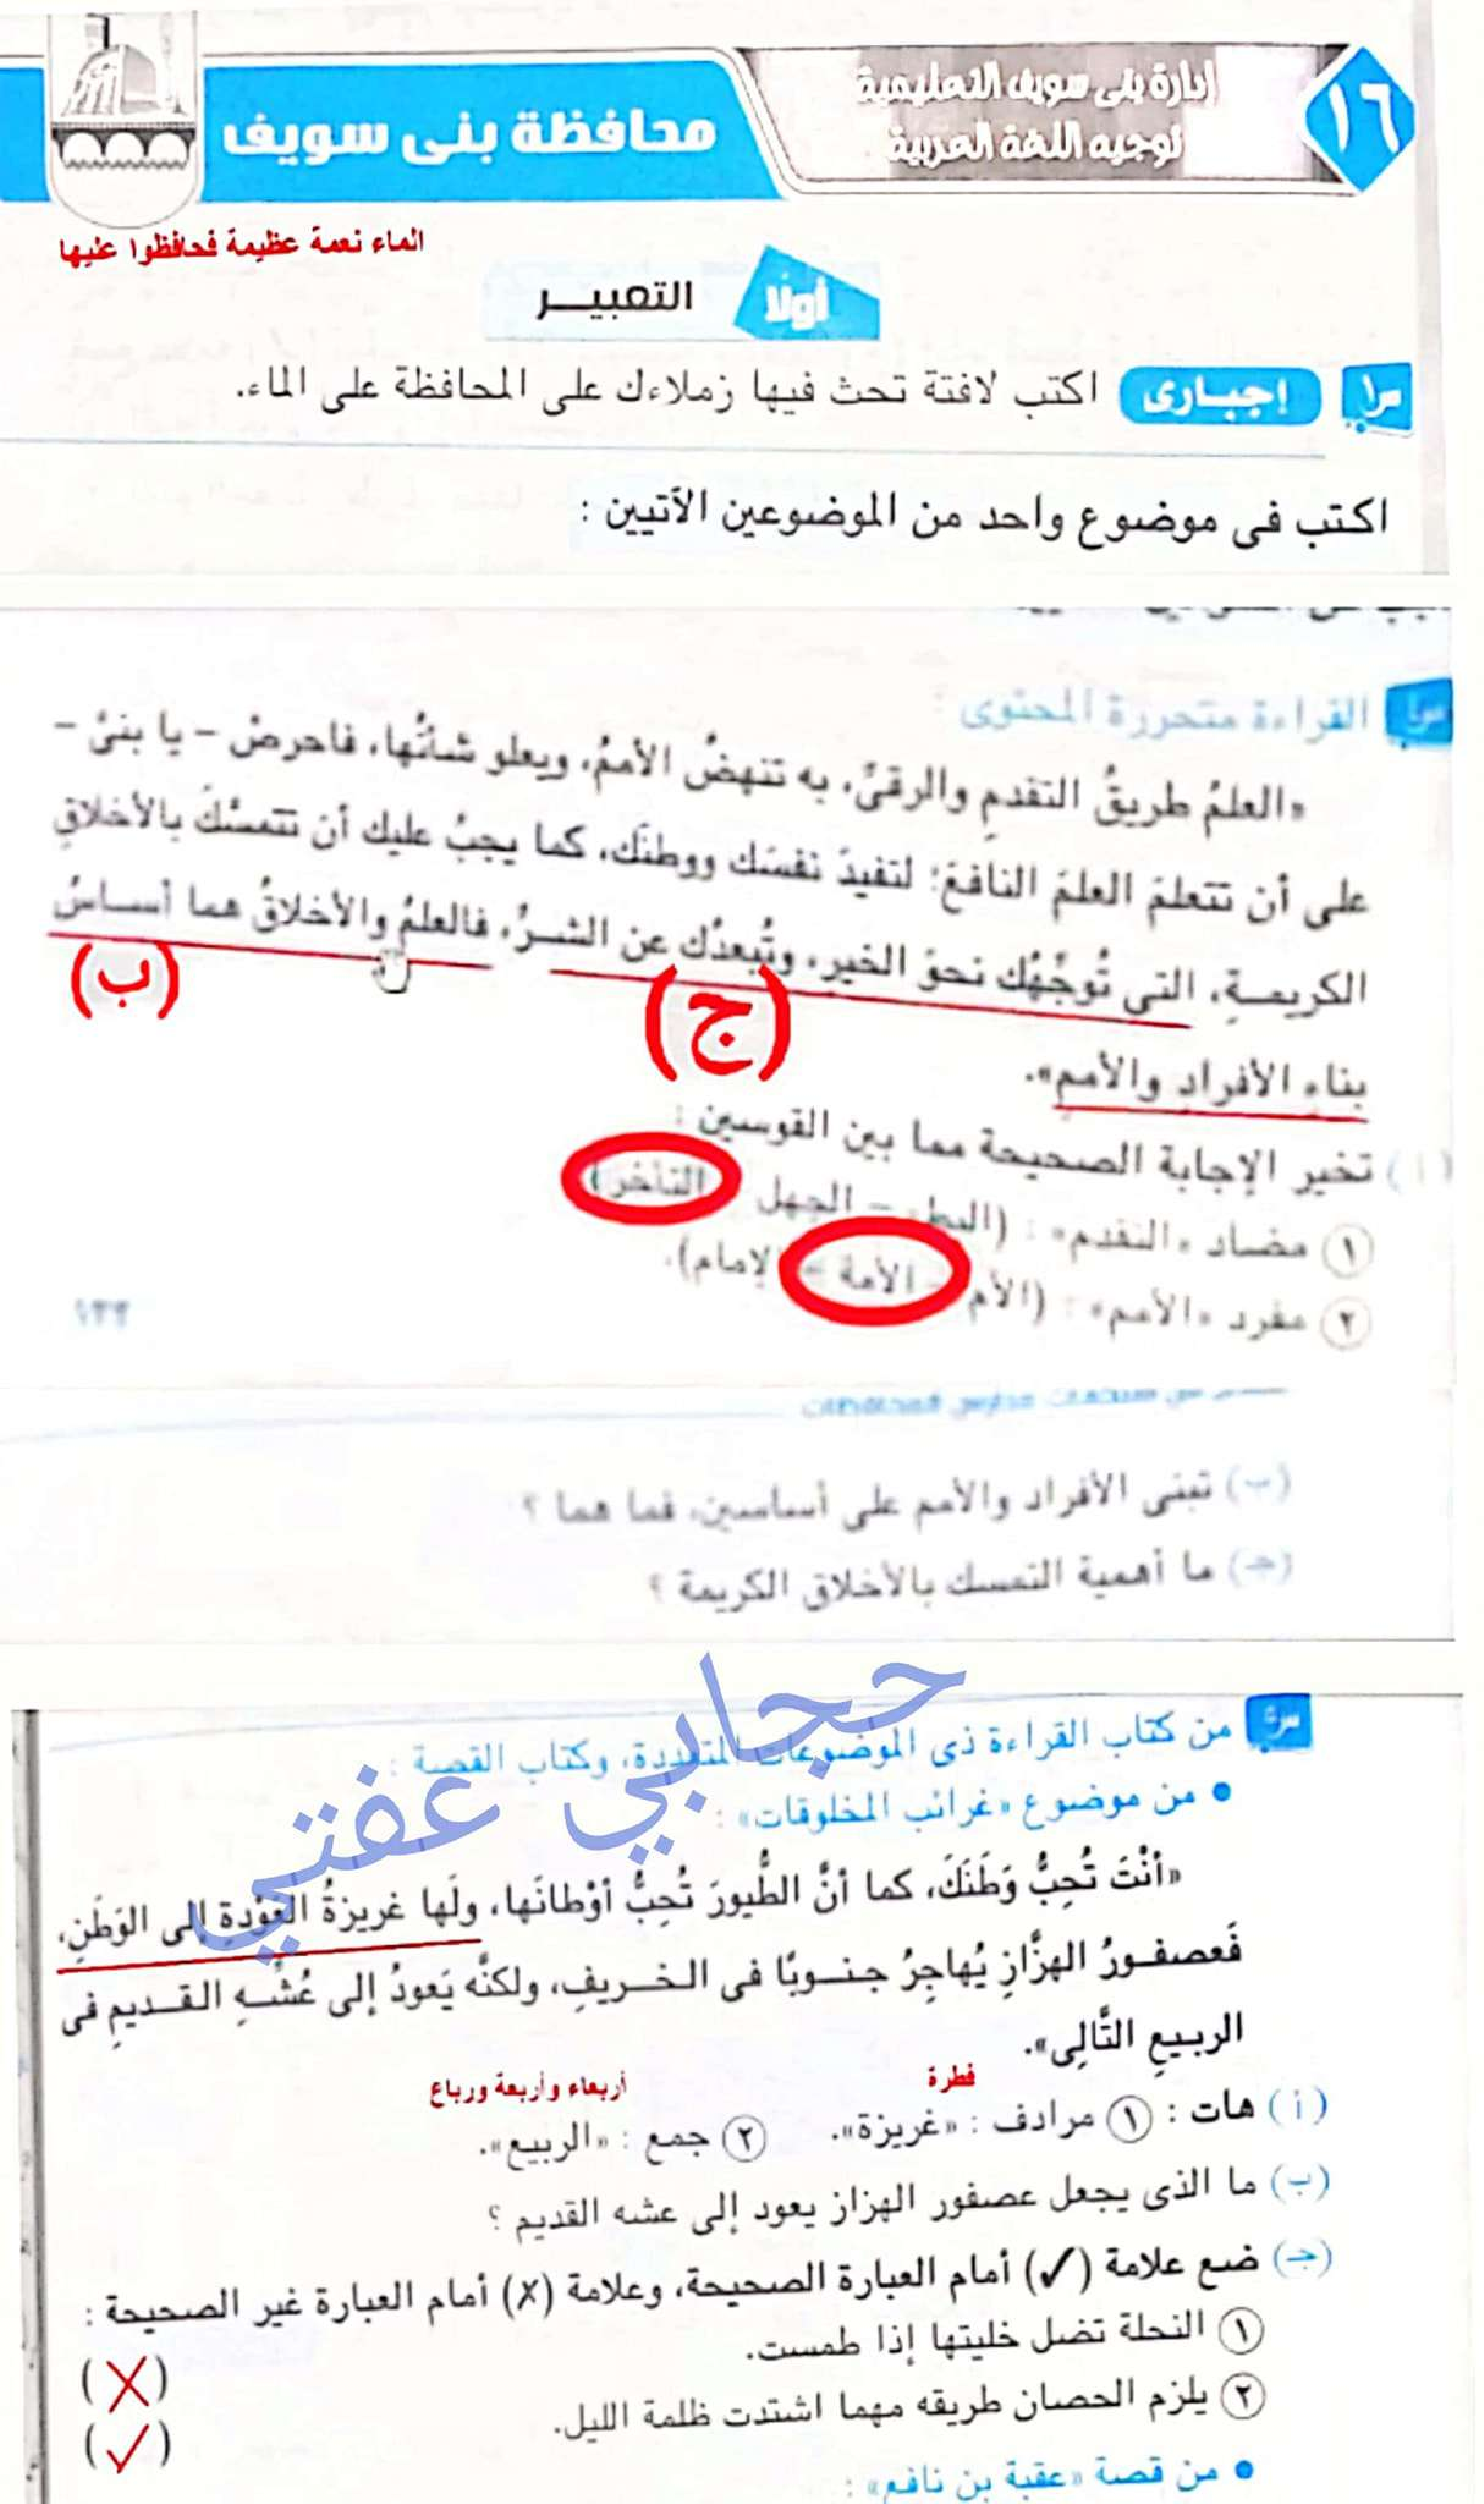 ١٦
إدارة بنى سويف التعليمية
توجيه اللغة العربية
محافظة بنى سويف
الماء نعمة عظيمة فحافظوا عليها
أولًا
التعبيـــر
س١ إجبـارى اكتب لافتة تحث فيها زملاءك على المحافظة على الماء.
اكتب فى موضوع واحد من الموضوعين الآتيين :
القراءة متحررة المحتوى :
«العلمُ طريقُ التقدمِ والرقىِّ، به تنهضُ الأممُ، ويعلو شأنُها، فاحرصْ – يا بنىَّ –
على أن تتعلمَ العلمَ النافعَ؛ لتفيدَ نفسَك ووطنَك، كما يجبُ عليك أن تتمسَّكَ بالأخلاقِ
الكريمـةِ، التى تُوجِّهُك نحوَ الخيرِ، وتُبعدُك عن الشـرِّ، فالعلمُ والأخلاقُ هما أسـاسُ
(ب)
(ج)
بناءِ الأفرادِ والأممِ».
(أ) تخير الإجابة الصحيحة مما بين القوسين :
١ مضاد «التقدم» : (البطء – الجهل – التأخر)
٢ مفرد «الأمم» : (الأم – الأمة – الإمام).
١٣٣
(ب) تبنى الأفراد والأمم على أساسين، فما هما ؟
(جـ) ما أهمية التمسك بالأخلاق الكريمة ؟
حجابي عفتي
من كتاب القراءة ذى الموضوعات المتعددة، وكتاب القصة :
• من موضوع «غرائب المخلوقات» :
«أنْتَ تُحِبُّ وَطَنَكَ، كما أنَّ الطُّيورَ تُحِبُّ أوْطانَها، ولَها غريزةُ العَوْدةِ إلى الوَطَنِ،
فَعصفـورُ الهزَّازِ يُهاجِرُ جنـوبًا فى الخـريفِ، ولكنَّه يَعودُ إلى عُشِّـهِ القـديمِ فى
الربيعِ التَّالِى».
فطرة
أربعاء وأربعة ورباع
(أ) هات : ١ مرادف : «غريزة». ٢ جمع : «الربيع».
(ب) ما الذى يجعل عصفور الهزاز يعود إلى عشه القديم ؟
(جـ) ضع علامة (✓) أمام العبارة الصحيحة، وعلامة (✗) أمام العبارة غير الصحيحة :
١ النحلة تضل خليتها إذا طمست. (✗)
٢ يلزم الحصان طريقه مهما اشتدت ظلمة الليل. (✓)
• من قصة «عقبة بن نافع» :